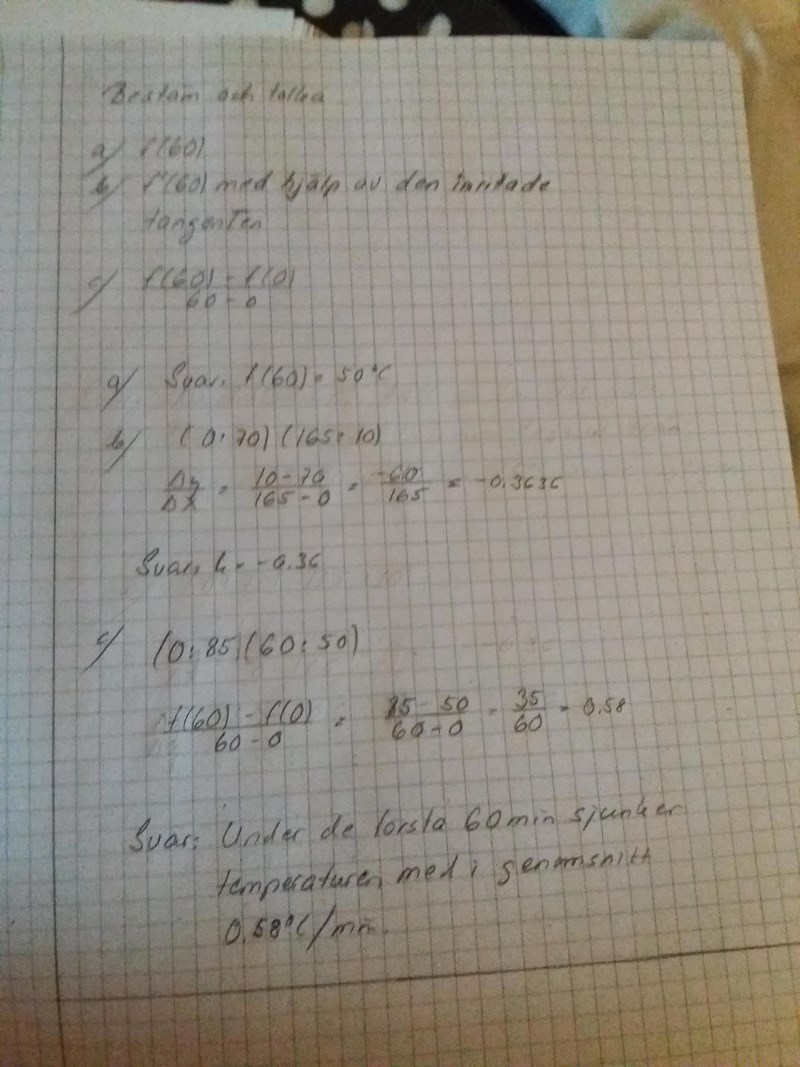 Bestäm och tolka
a) f(60)
b) f'(60) med hjälp av den inritade
tangenten
c) f(60) - f(0) / 60 - 0
a) Svar: f(60) = 50°C
b) (0; 70) (165; 10)
Δy / Δx = 10 - 70 / 165 - 0 = -60 / 165 = -0.3636
Svar: k = -0.36
c) (0; 85) (60; 50)
f(60) - f(0) / 60 - 0 = 85 - 50 / 60 - 0 = 35 / 60 = 0.58
Svar: Under de första 60 min sjunker
temperaturen med i genomsnitt
0,58°C/min.